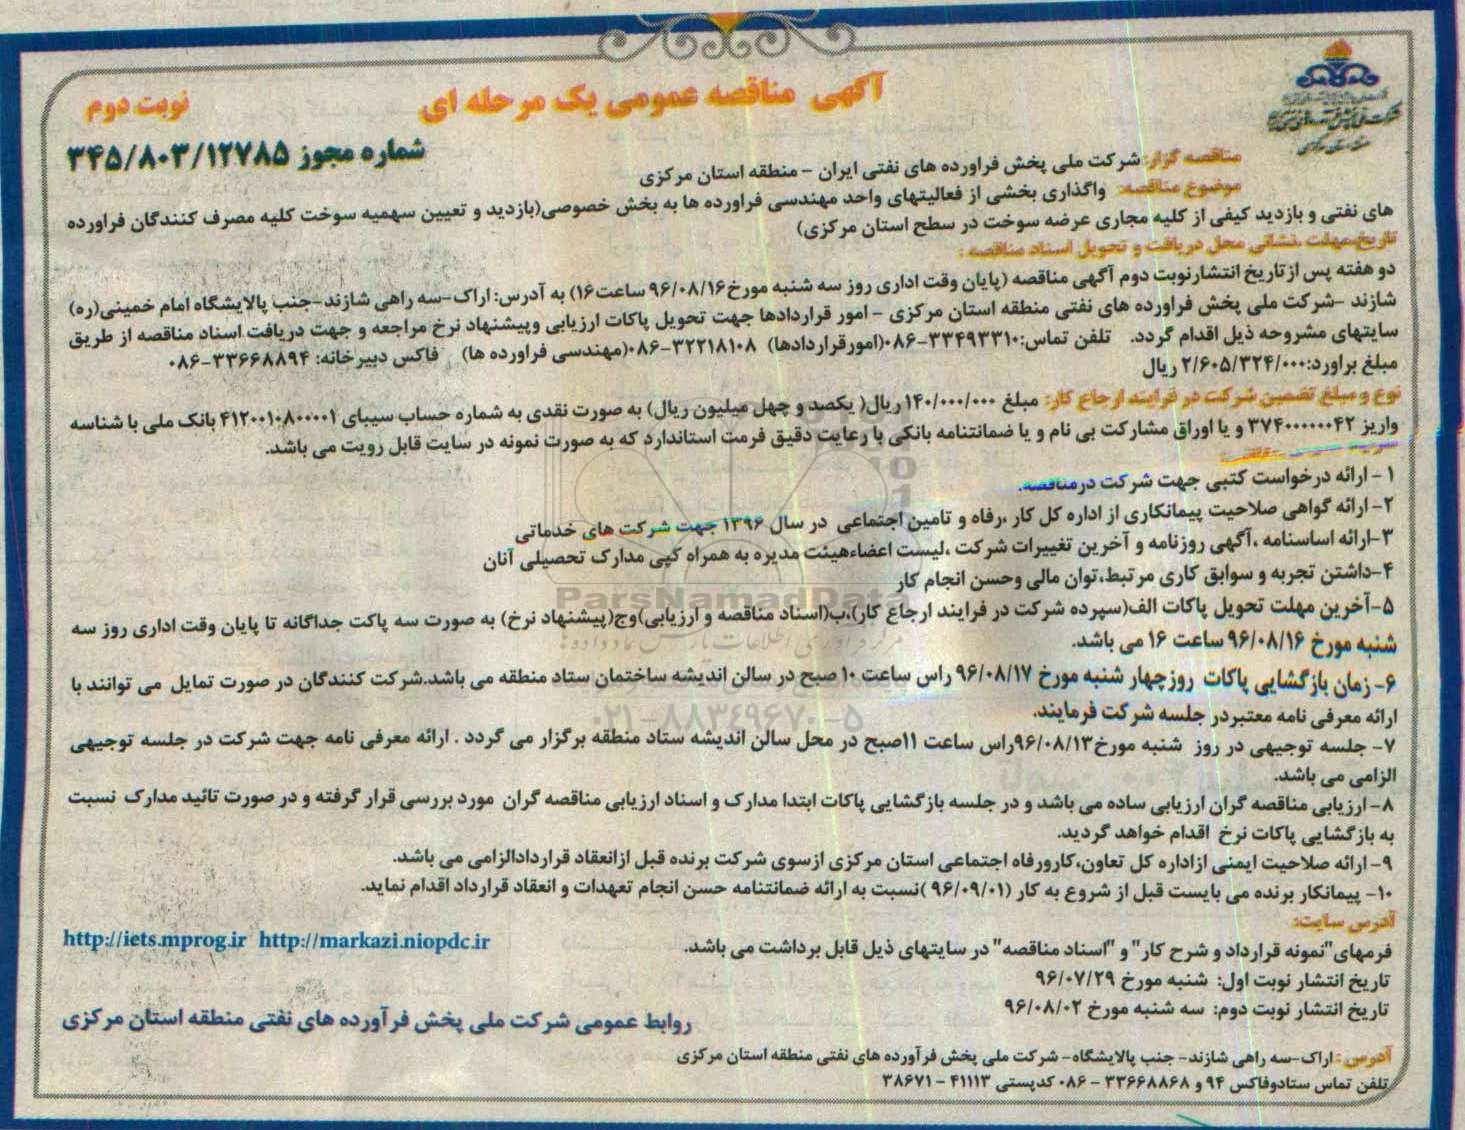 آگهی مناقصه عمومی یک مرحله ای
نوبت دوم
شماره مجوز ۳۴۵/۸۰۳/۱۲۷۸۵
شرکت ملی پخش فرآورده های نفتی ایران
منطقه استان مرکزی
مناقصه گزار: شرکت ملی پخش فراورده های نفتی ایران - منطقه استان مرکزی
موضوع مناقصه: واگذاری بخشی از فعالیتهای واحد مهندسی فراورده ها به بخش خصوصی(بازدید و تعیین سهمیه سوخت کلیه مصرف کنندگان فراورده
های نفتی و بازدید کیفی از کلیه مجاری عرضه سوخت در سطح استان مرکزی)
تاریخ،مهلت ،نشانی محل دریافت و تحویل اسناد مناقصه :
دو هفته پس ازتاریخ انتشارنوبت دوم آگهی مناقصه (پایان وقت اداری روز سه شنبه مورخ۹۶/۰۸/۱۶ ساعت۱۶) به آدرس: اراک-سه راهی شازند-جنب پالایشگاه امام خمینی(ره)
شازند -شرکت ملی پخش فراورده های نفتی منطقه استان مرکزی - امور قراردادها جهت تحویل پاکات ارزیابی وپیشنهاد نرخ مراجعه و جهت دریافت اسناد مناقصه از طریق
سایتهای مشروحه ذیل اقدام گردد. تلفن تماس:۳۳۴۹۳۳۱۰-۰۸۶(امورقراردادها) ۳۲۲۱۸۱۰۸-۰۸۶(مهندسی فراورده ها) فاکس دبیرخانه: ۳۳۶۶۸۸۹۴-۰۸۶
مبلغ براورد:۲/۶۰۵/۳۲۴/۰۰۰ ریال
نوع و مبلغ تضمین شرکت در فرایند ارجاع کار: مبلغ ۱۴۰/۰۰۰/۰۰۰ریال( یکصد و چهل میلیون ریال) به صورت نقدی به شماره حساب سیبای ۴۱۲۰۰۱۰۸۰۰۰۰۱ بانک ملی با شناسه
واریز ۳۷۴۰۰۰۰۰۰۴۲ و یا اوراق مشارکت بی نام و یا ضمانتنامه بانکی با رعایت دقیق فرمت استاندارد که به صورت نمونه در سایت قابل رویت می باشد.
۱ - ارائه درخواست کتبی جهت شرکت درمناقصه.
۲- ارائه گواهی صلاحیت پیمانکاری از اداره کل کار ،رفاه و تامین اجتماعی در سال ۱۳۹۶ جهت شرکت های خدماتی
۳-ارائه اساسنامه ،آگهی روزنامه و آخرین تغییرات شرکت ،لیست اعضاءهیئت مدیره به همراه کپی مدارک تحصیلی آنان
۴-داشتن تجربه و سوابق کاری مرتبط،توان مالی وحسن انجام کار
۵-آخرین مهلت تحویل پاکات الف(سپرده شرکت در فرایند ارجاع کار)،ب(اسناد مناقصه و ارزیابی)وج(پیشنهاد نرخ) به صورت سه پاکت جداگانه تا پایان وقت اداری روز سه
شنبه مورخ ۹۶/۰۸/۱۶ ساعت ۱۶ می باشد.
۶- زمان بازگشایی پاکات روزچهار شنبه مورخ ۹۶/۰۸/۱۷ راس ساعت ۱۰ صبح در سالن اندیشه ساختمان ستاد منطقه می باشد.شرکت کنندگان در صورت تمایل می توانند با
ارائه معرفی نامه معتبردر جلسه شرکت فرمایند.
۷- جلسه توجیهی در روز شنبه مورخ۹۶/۰۸/۱۳راس ساعت ۱۱صبح در محل سالن اندیشه ستاد منطقه برگزار می گردد . ارائه معرفی نامه جهت شرکت در جلسه توجیهی
الزامی می باشد.
۸- ارزیابی مناقصه گران ارزیابی ساده می باشد و در جلسه بازگشایی پاکات ابتدا مدارک و اسناد ارزیابی مناقصه گران مورد بررسی قرار گرفته و در صورت تائید مدارک نسبت
به بازگشایی پاکات نرخ اقدام خواهد گردید.
۹- ارائه صلاحیت ایمنی ازاداره کل تعاون،کارورفاه اجتماعی استان مرکزی ازسوی شرکت برنده قبل ازانعقاد قراردادالزامی می باشد.
۱۰- پیمانکار برنده می بایست قبل از شروع به کار (۹۶/۰۹/۰۱ )نسبت به ارائه ضمانتنامه حسن انجام تعهدات و انعقاد قرارداد اقدام نماید.
آدرس سایت:
فرمهای"نمونه قرارداد و شرح کار" و "اسناد مناقصه" در سایتهای ذیل قابل برداشت می باشد.
http://iets.mprog.ir http://markazi.niopdc.ir
تاریخ انتشار نوبت اول: شنبه مورخ ۹۶/۰۷/۲۹
تاریخ انتشار نوبت دوم: سه شنبه مورخ ۹۶/۰۸/۰۲
روابط عمومی شرکت ملی پخش فرآورده های نفتی منطقه استان مرکزی
آدرس : اراک-سه راهی شازند- جنب پالایشگاه- شرکت ملی پخش فرآورده های نفتی منطقه استان مرکزی
تلفن تماس ستادوفاکس ۹۴ و ۳۳۶۶۸۸۶۸ - ۰۸۶ کدپستی ۴۱۱۱۳ - ۳۸۶۷۱
ParsNamadData
مرکز فرآوری اطلاعات پارس نماد داده ها
۰۲۱-۸۸۳۴۹۶۷۰-۵